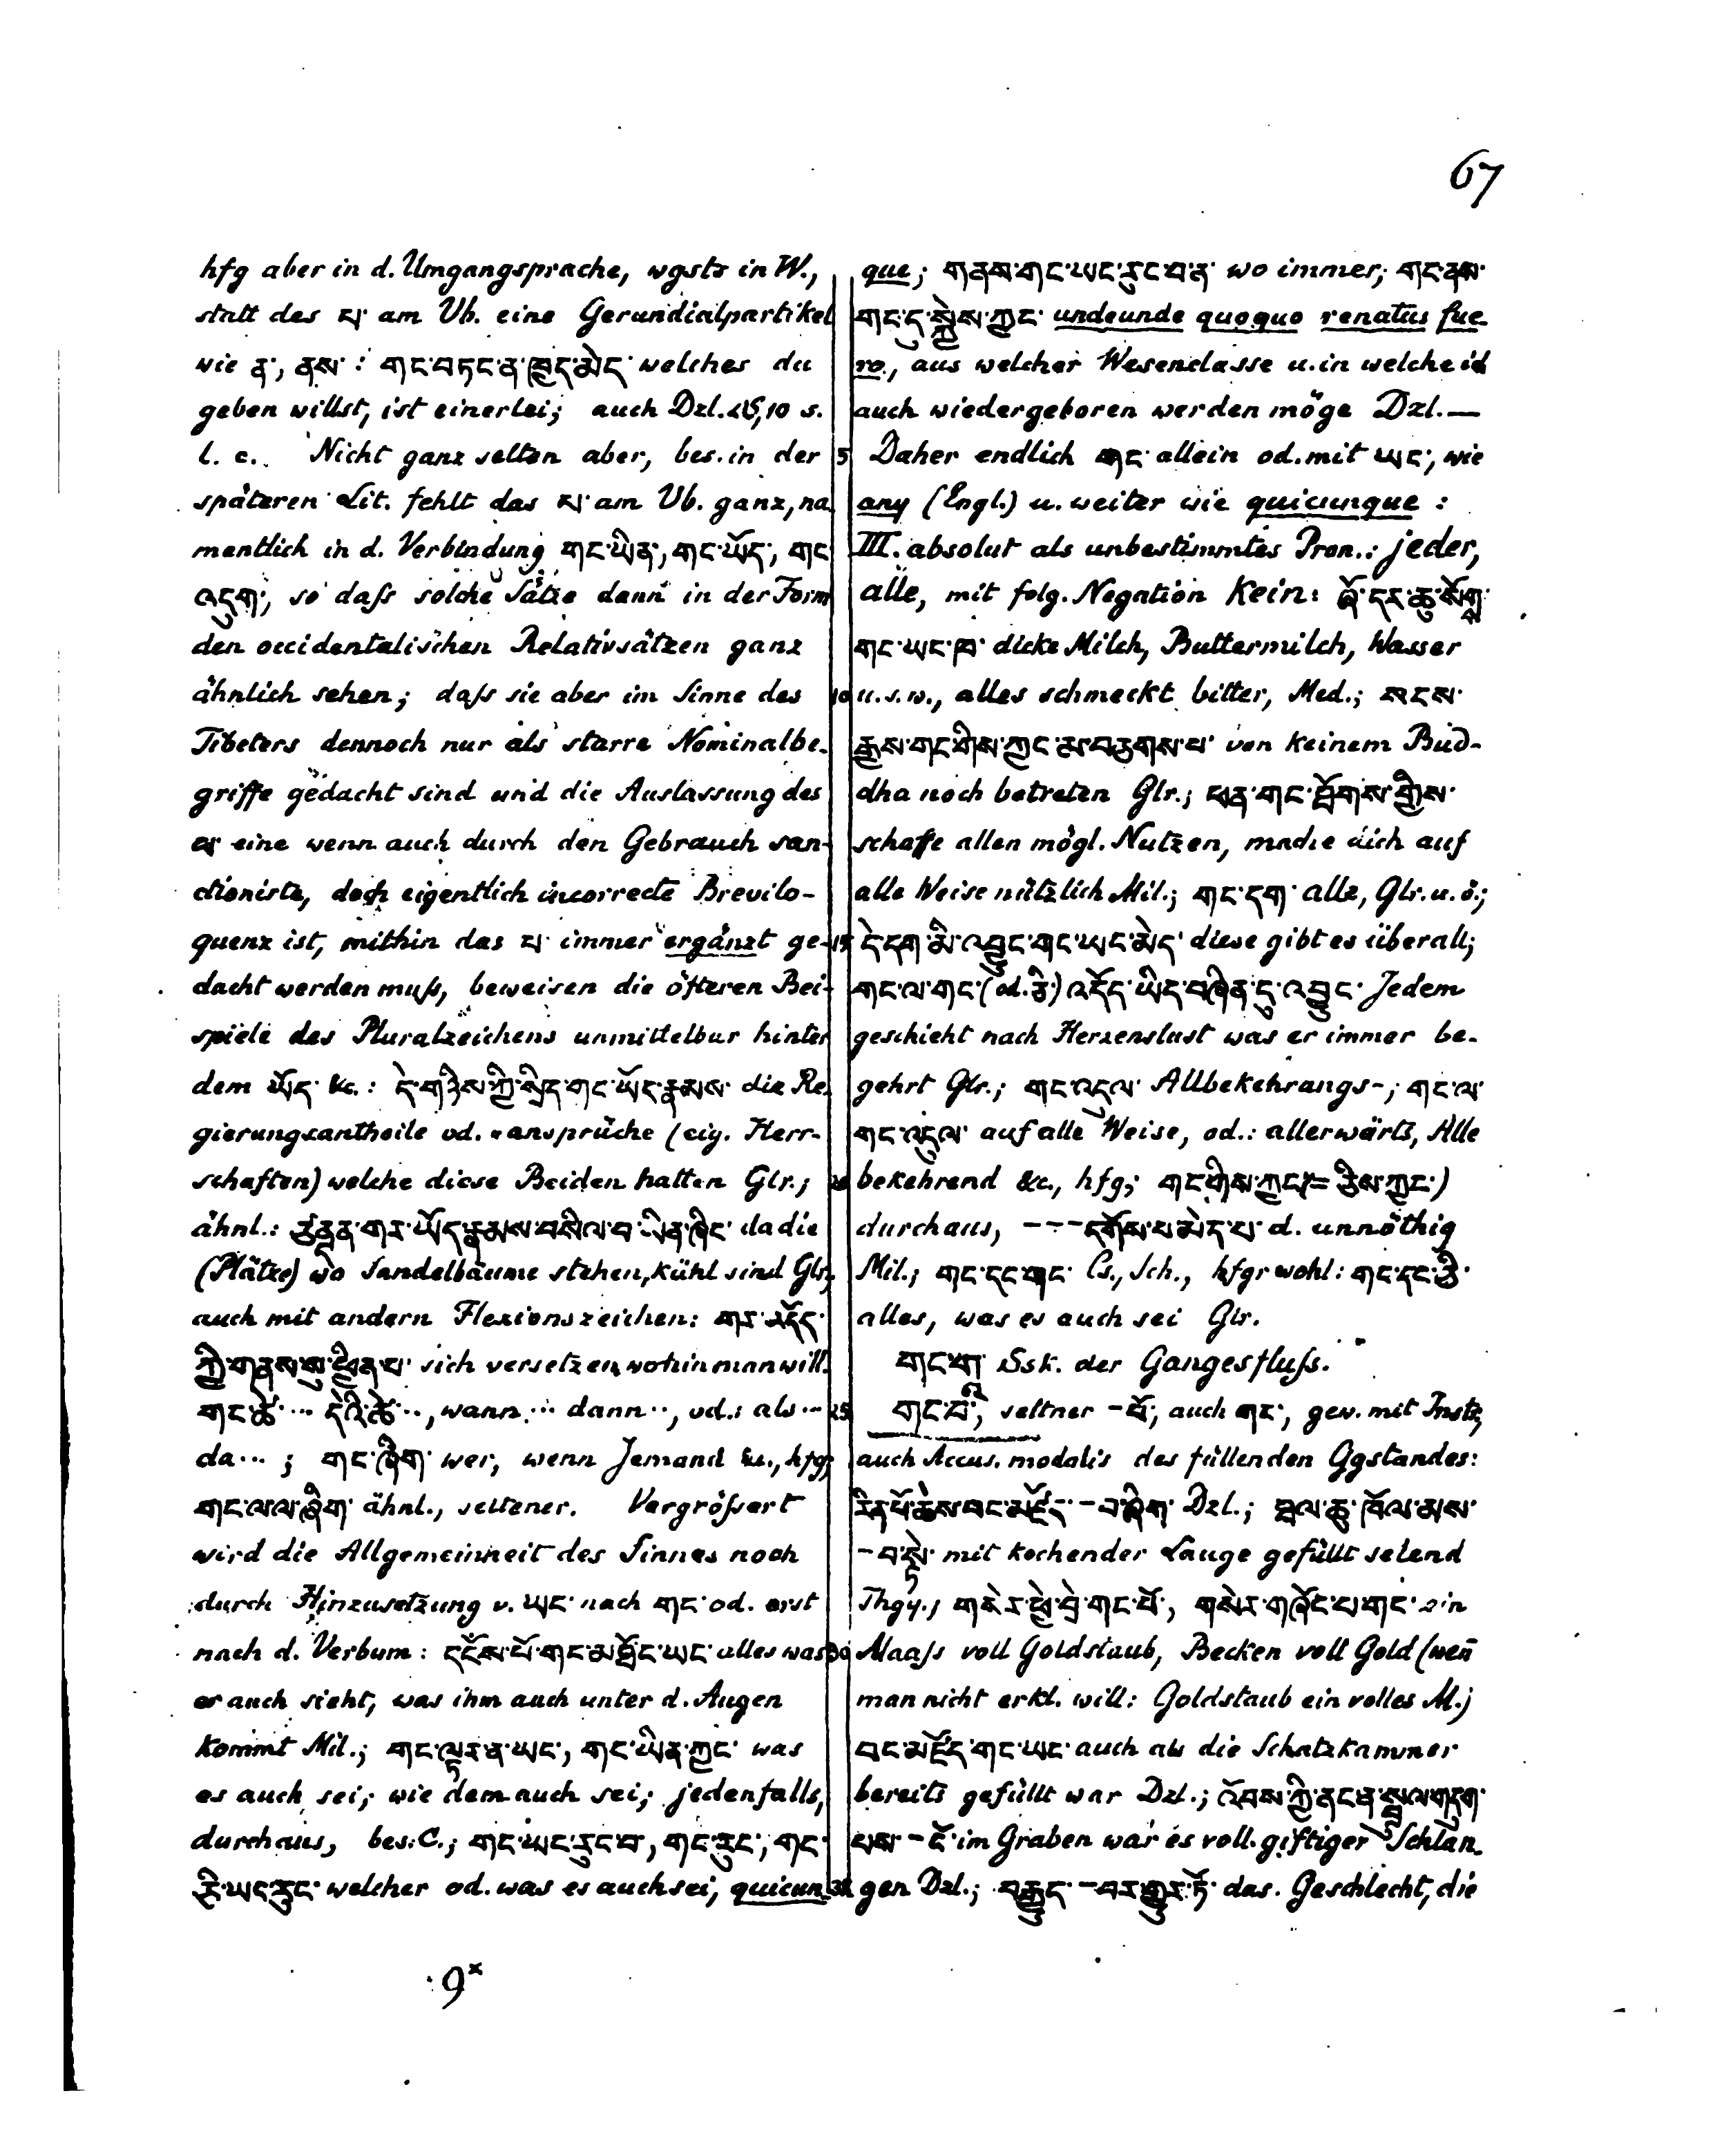 67
hfg aber in d. Umgangsprache, wgsts in W.,
statt des པ་ am Vb. eine Gerundialpartikel
wie ན་, ནས་: གང་བཏང་ན་ཁྱད་མེད་ welches du
geben willst, ist einerlei; auch Dzl. 10 s.
l. c. Nicht ganz selten aber, bes. in der
späteren Lit. fehlt das པ་ am Vb. ganz, na-
mentlich in d. Verbindung གང་ཡིན་, གང་ཡོད་, གང་
འདུག་, so daſs solche Sätze dann in der Form
den occidentalischen Relativsätzen ganz
ähnlich sehen; daſs sie aber im Sinne des
Tibeters dennoch nur als starre Nominalbe-
griffe gedacht sind und die Auslassung des
པ་ eine wenn auch durch den Gebrauch san-
ctionirte, doch eigentlich incorrecte Brevilo-
quenz ist, mithin das པ་ immer ergänzt ge-
dacht werden muſs, beweisen die öfteren Bei-
spiele des Pluralzeichens unmittelbar hinter
dem ཡོད་ &c.: དེ་གཉིས་ཀྱི་སྲིད་གང་ཡོད་རྣམས་ die Re-
gierungsantheile od. -ansprüche (eig. Herr-
schaften) welche diese Beiden hatten Glr.;
ähnl.: ཙནྡན་གར་ཡོད་རྣམས་བསིལ་བ་ཡིན་ཞིང་ da die
(Plätze) wo Sandelbäume stehen, kühl sind Glr.,
auch mit andern Flexionszeichen: གར་འདོད་
ཀྱི་གནས་སུ་ཕྱིན་པ་ sich versetzen wohin man will.
གང་ཚེ་ ··· དེའི་ཚེ་ ···, wann ··· dann ··, od.: als ···
da ··· ; གང་ཞིག་ wer, wenn Jemand &c., hfg;
གང་ལ་ལ་ཞིག་ ähnl., seltener. Vergröſsert
wird die Allgemeinheit des Sinnes noch
durch Hinzusetzung v. ཡང་ nach གང་ od. erst
nach d. Verbum: དངོས་པོ་གང་མཐོང་ཡང་ alles was
er auch sieht, was ihm auch unter d. Augen
kommt Mil.; གང་ལྟར་ན་ཡང་, གང་ཡིན་ཀྱང་ was
es auch sei; wie dem auch sei; jedenfalls,
durchaus, bes. C.; གང་ཡང་རུང་བ་, གང་རུང་, གང་
རེ་ཡང་རུང་ welcher od. was es auch sei, quicun-
9*
que; གནས་གང་ཡང་རུང་བ་ན་ wo immer; གང་ནས་
གང་དུ་སྐྱེས་ཀྱང་ undeunde quoquo renatus fue-
ro., aus welcher Wesenclasse u. in welche ich
auch wiedergeboren werden möge Dzl. —
5 Daher endlich གང་ allein od. mit ཡང་, wie
any (Engl.) u. weiter wie quicunque:
III. absolut als unbestimmtes Pron.: jeder,
alle, mit folg. Negation kein: ཞོ་དར་ཆུ་སོགས་
གང་ཡང་ཁ་ dicke Milch, Buttermilch, Wasser
10 u. s. w., alles schmeckt bitter, Med.; སངས་
རྒྱས་གང་གིས་ཀྱང་མ་བཅགས་པ་ von keinem Bud-
dha noch betreten Glr.; ཕན་གང་ཐོགས་གྱིས་
schaffe allen mögl. Nutzen, mache dich auf
alle Weise nützlich Mil.; གང་དག་ alle, Glr. u. ö.;
15 དེ་དག་མི་འབྱུང་གང་ཡང་མེད་ diese gibt es überall;
གང་ལ་གང་ (od. ཅི་) འདོད་ཡིད་བཞིན་དུ་འབྱུང་ Jedem
geschieht nach Herzenslust was er immer be-
gehrt Glr.; གང་འདུལ་ Allbekehrungs-; གང་ལ་
གང་འདུལ་ auf alle Weise, od.: allerwärts, Alle
20 bekehrend &c., hfg; གང་གིས་ཀྱང་ (= ཅིས་ཀྱང་)
durchaus, --- དགོས་པ་མེད་པ་ d. unnöthig
Mil.; གང་དང་གང་ Cs., Sch., hfgr wohl: གང་དང་ཅི་
alles, was es auch sei Glr.
གང་གཱ་ Ssk. der Gangesfluſs.
25 གང་བ་, seltner -པོ་, auch གང་, gew. mit Instr.,
auch Accus. modalis des füllenden Ggstandes:
རིན་པོ་ཆེས་བང་མཛོད་ -བ་ཞིག་ Dzl.; ཐལ་ཆུ་ཁོལ་མས་
-བ་སྟེ་ mit kochender Lauge gefüllt seiend
Thgy.; གསེར་ཕྱེ་བྲེ་གང་པོ་, གསེར་གཞོང་པ་གང་ ein
30 Maaſs voll Goldstaub, Becken voll Gold (weñ
man nicht erkl. will: Goldstaub ein volles M.)
བང་མཛོད་གང་ཡང་ auch als die Schatzkammer
bereits gefüllt war Dzl.; འོབས་ཀྱི་ནང་ན་སྦྲུལ་གདུག་
པས་ -ངོ་ im Graben war es voll giftiger Schlan-
35 gen Dzl.; བརྒྱུད་ -བར་གྱུར་ཏོ་ das Geschlecht, die